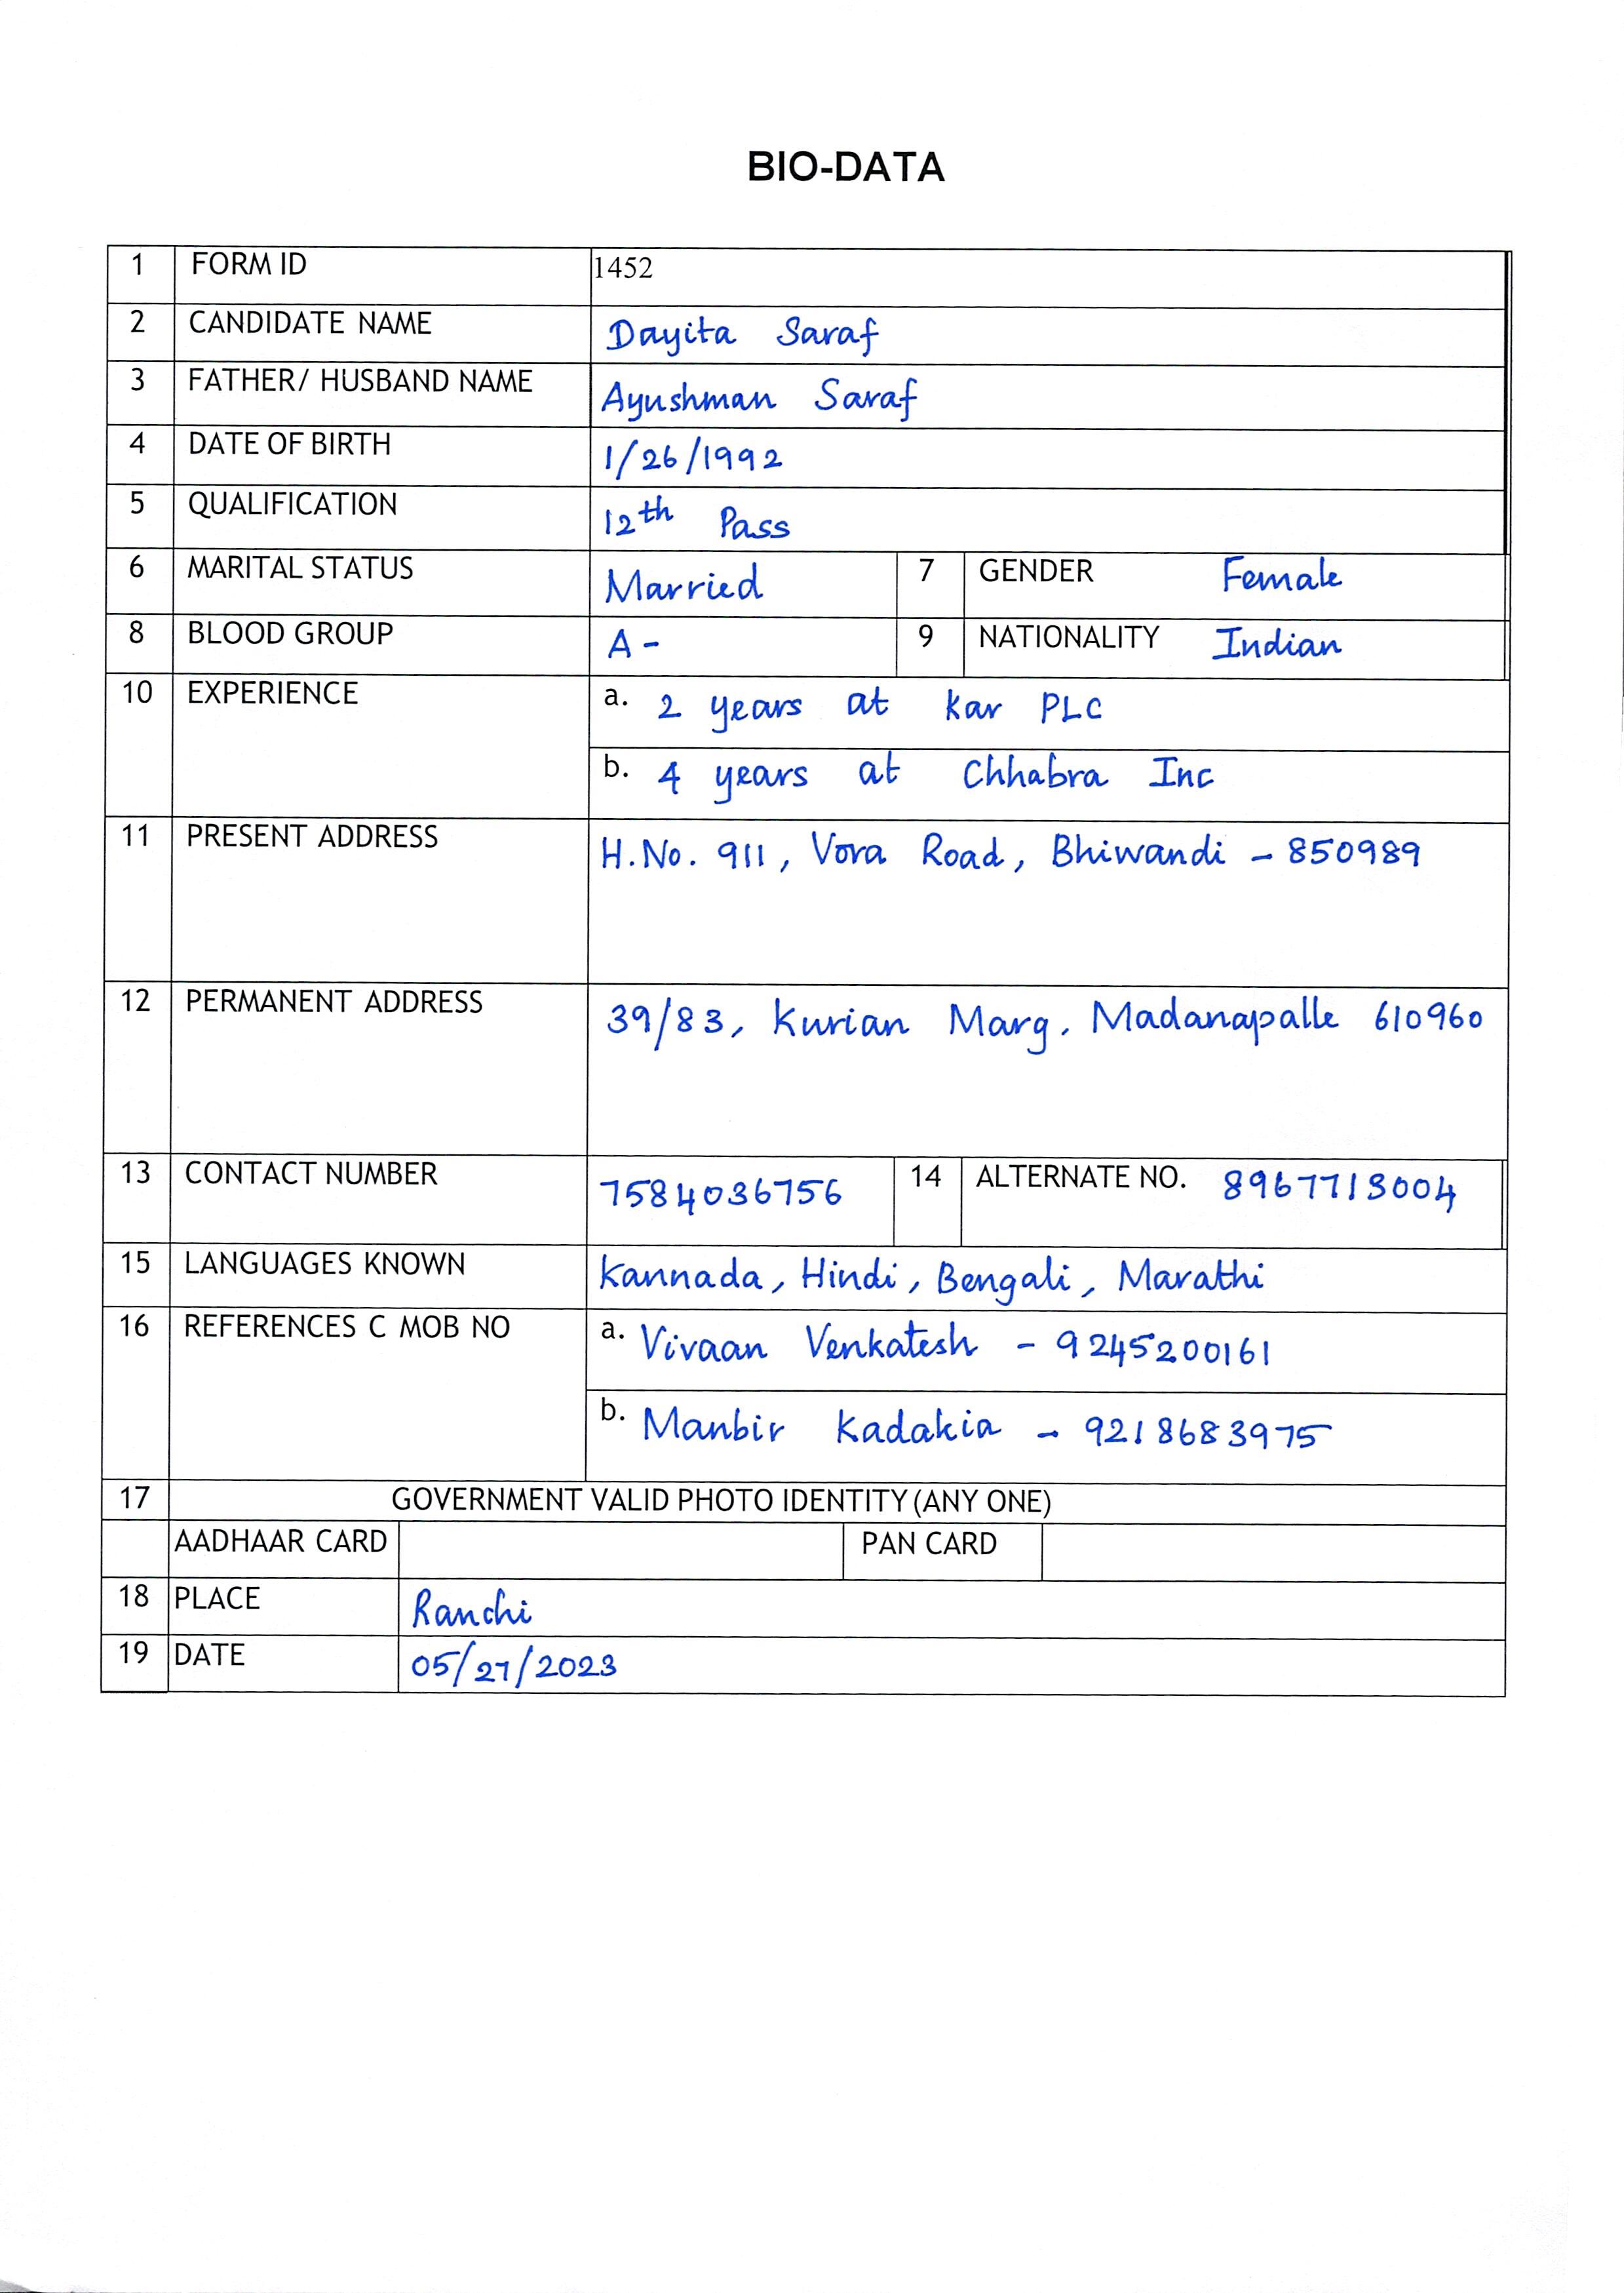 BIO-DATA
1 FORM ID 1452
2 CANDIDATE NAME Dayita Saraf
3 FATHER/ HUSBAND NAME Ayushman Saraf
4 DATE OF BIRTH 1/26/1992
5 QUALIFICATION 12th Pass
6 MARITAL STATUS Married 7 GENDER Female
8 BLOOD GROUP A- 9 NATIONALITY Indian
10 EXPERIENCE a. 2 years at Kar PLC
b. 4 years at Chhabra Inc
11 PRESENT ADDRESS H.No. 911, Vora Road, Bhiwandi - 850989
12 PERMANENT ADDRESS 39/83, Kurian Marg, Madanapalle 610960
13 CONTACT NUMBER 7584036756 14 ALTERNATE NO. 8967713004
15 LANGUAGES KNOWN Kannada, Hindi, Bengali, Marathi
16 REFERENCES C MOB NO a. Vivaan Venkatesh - 9245200161
b. Manbir Kadakia - 9218683975
17 GOVERNMENT VALID PHOTO IDENTITY (ANY ONE)
AADHAAR CARD PAN CARD
18 PLACE Ranchi
19 DATE 05/27/2023